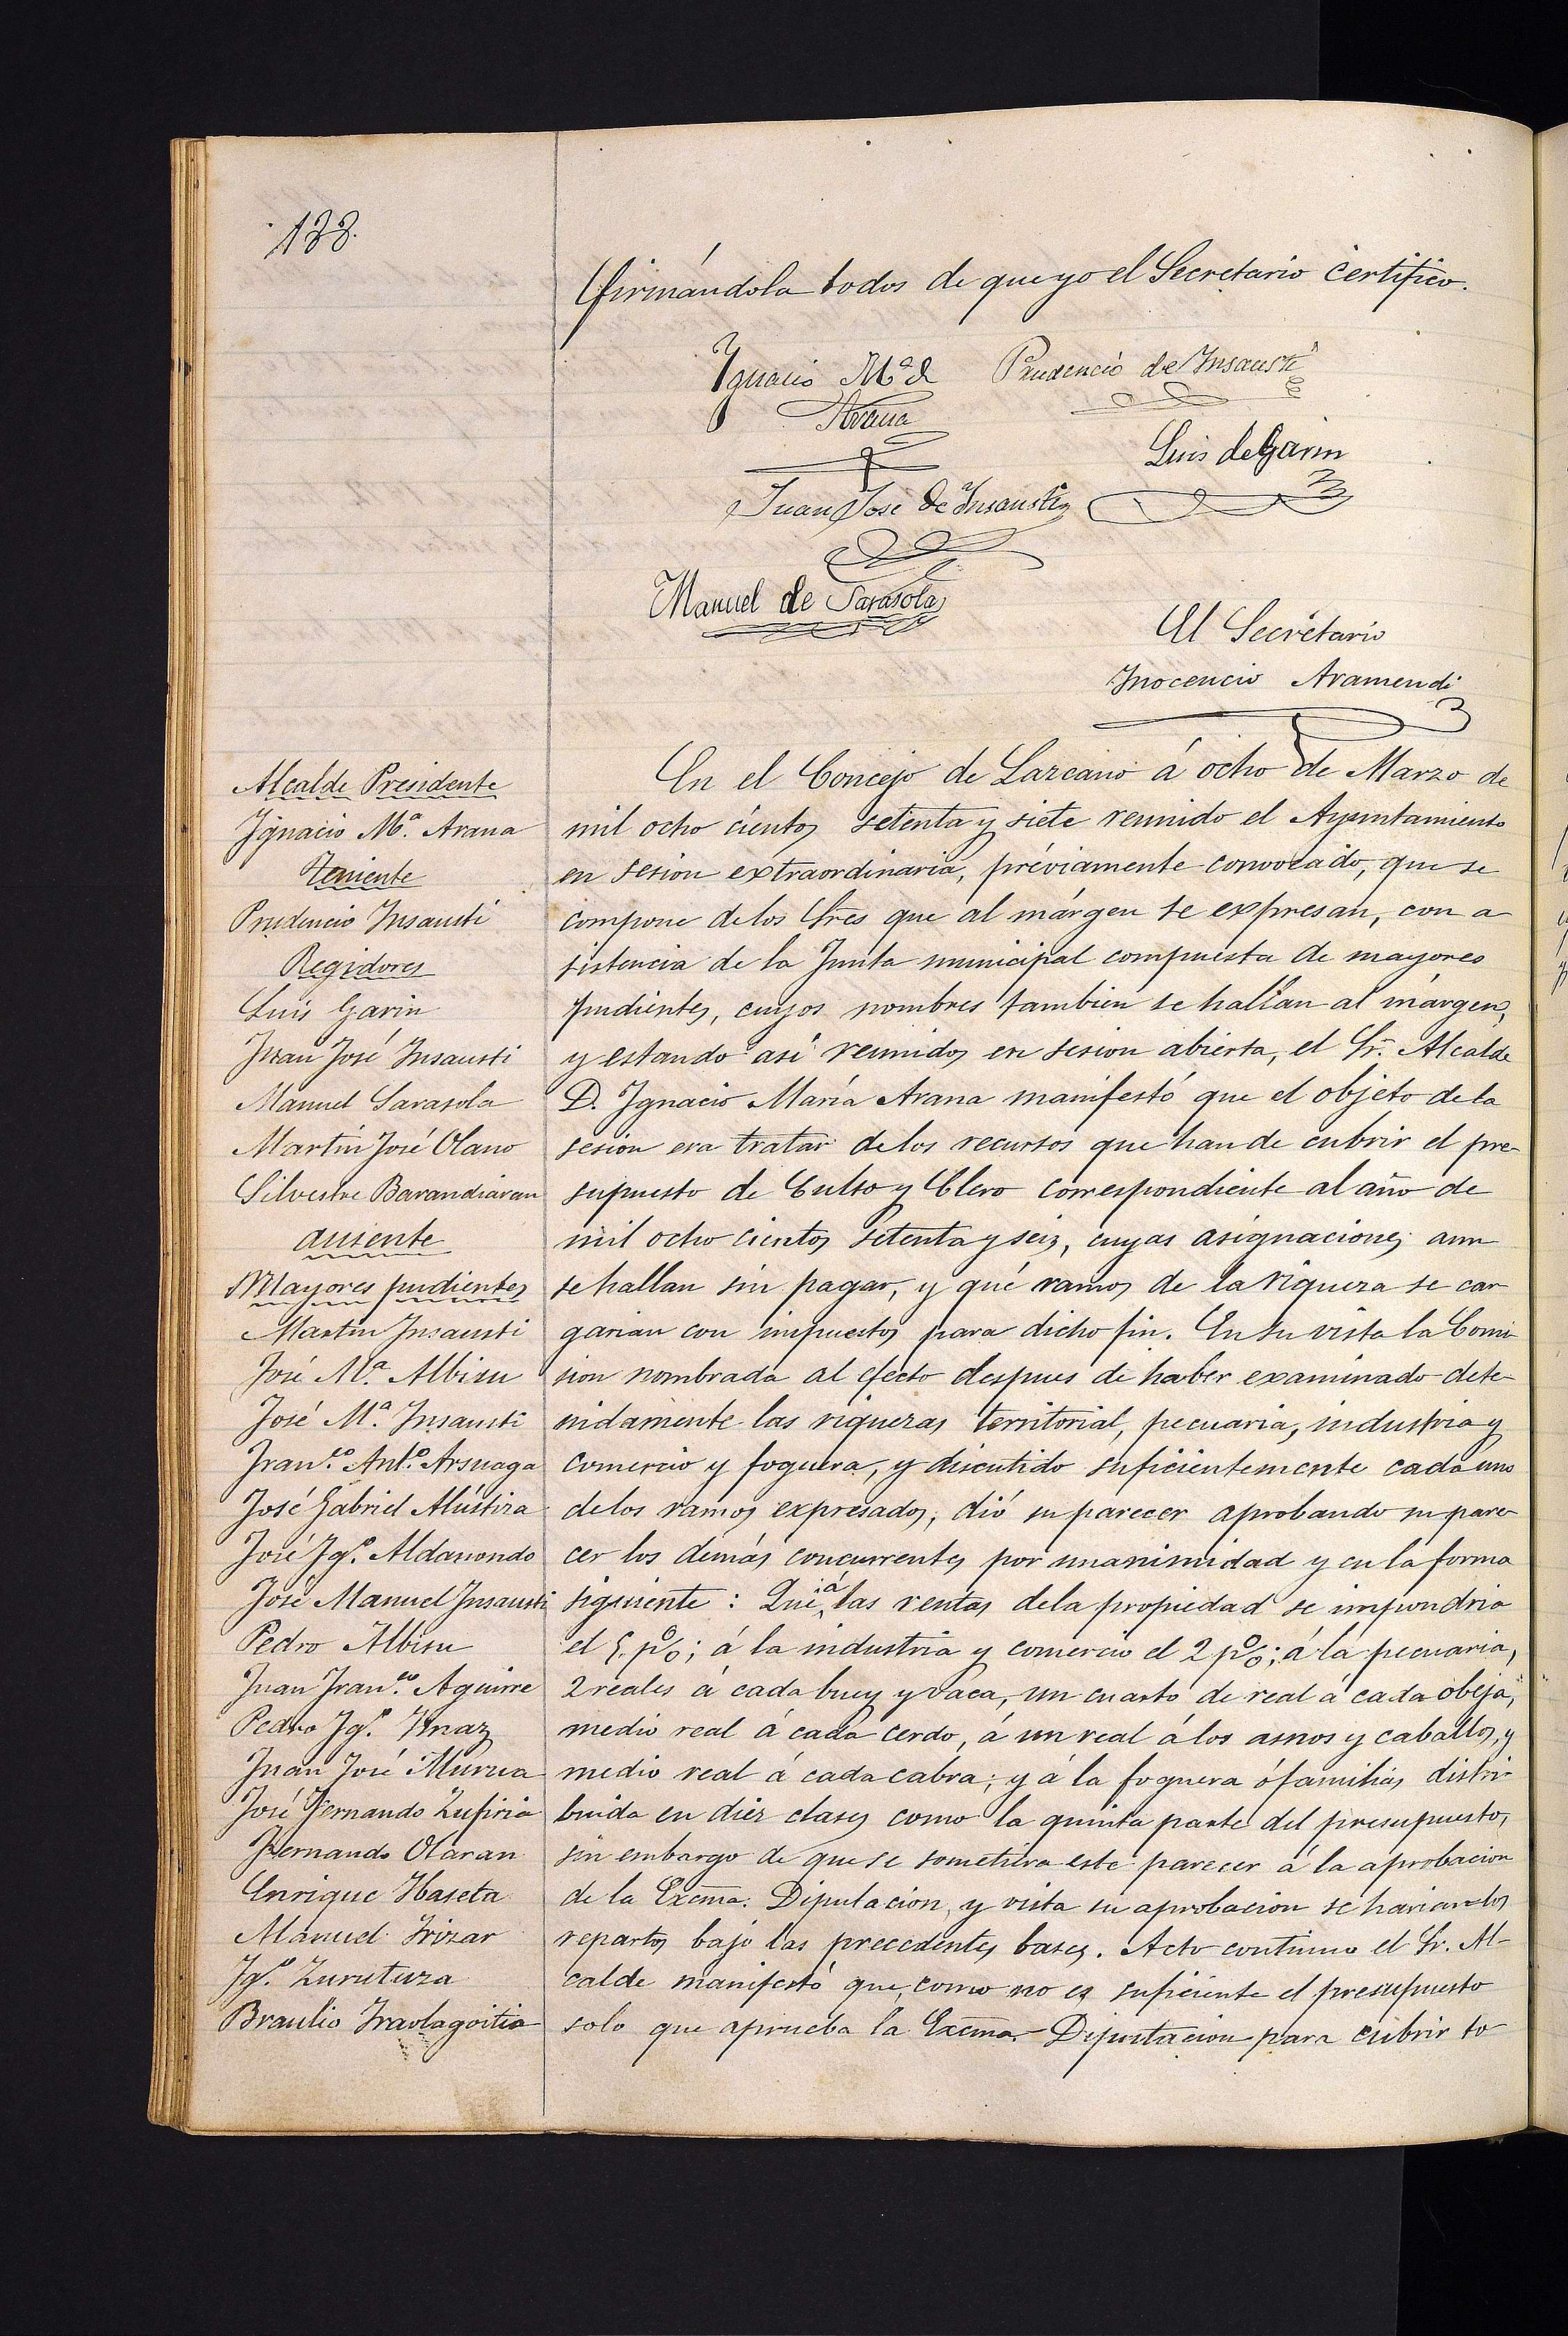 138.
firmándola todos de que yo el Secretario certifico.
Ignacio Mª de
Arana
Prudencio de Insausti
Luis de Garin
Juan José de Insausti
Manuel de Sarasola
El Secretario
Inocencio Aramendi
Alcalde Presidente
Ignacio Mª. Arana
Teniente
Prudencio Insausti
Regidores
Luis Garin
Juan José Insausti
Manuel Sarasola
Martin José Olano
Silvestre Barandiaran
ausente
Mayores pudientes
Martin Insausti
José Mª. Albisu
José Mª. Insausti
Franco. Anto. Arsuaga
José Gabriel Alústiza
José Igo. Aldanondo
José Manuel Insausti
Pedro Albisu
Juan Franco. Aguirre
Pedro Igo.
Juan José Múrua
José Fernando Zufiria
Fernando Olaran
Enrique Ibaseta
Manuel Irizar
Igo. Zurutuza
Braulio Iraolagoitia
En el Concejo de Lazcano á ocho de Marzo de
mil ocho cientos setenta y siete reunido el Ayuntamiento
en sesion extraordinaria, préviamente convocado, que se
compone de los Sres que al márgen se expresan, con a
sistencia de la Junta municipal compuesta de mayores
pudientes, cuyos nombres tambien se hallan al márgen,
y estando asi reunidos en sesion abierta, el Sr. Alcalde
D. Ignacio María Arana manifestó que el objeto de la
sesion era tratar de los recursos que han de cubrir el pre-
supuesto de Culto y Clero correspondiente al año de
mil ocho cientos setenta y seis, cuyas asignaciones aun
se hallan sin pagar, y qué ramos de la riqueza se car
garian con impuestos para dicho fin. En su vista la Comi-
sion nombrada al efecto despues de haber examinado dete-
nidamente las riquezas territorial, pecuaria, industria y
comercio y foguera, y discutido suficientemente cada uno
de los ramos expresados, dió su parecer aprobando su pare-
cer los demás concurrentes por unanimidad y en la forma
siguiente: Que á las rentas de la propiedad se impondria
el 5 p%; á la industria y comercio el 2 p%; á la pecuaria,
2 reales á cada buey y vaca, un cuarto de real á cada obeja,
medio real á cada cerdo, á un real á los asnos y caballos, y
medio real á cada cabra; y á la foguera ó familias distri-
buida en diez clases como la quinta parte del presupuesto,
sin embargo de que se sometiera este parecer á la aprobacion
de la Excma. Diputacion, y vista su aprobacion se harian los
repartos bajo las precedentes bases. Acto continuo el Sr. Al-
calde manifestó que, como no es suficiente el presupuesto
solo que aprueba la Excma. Diputacion para cubrir to-